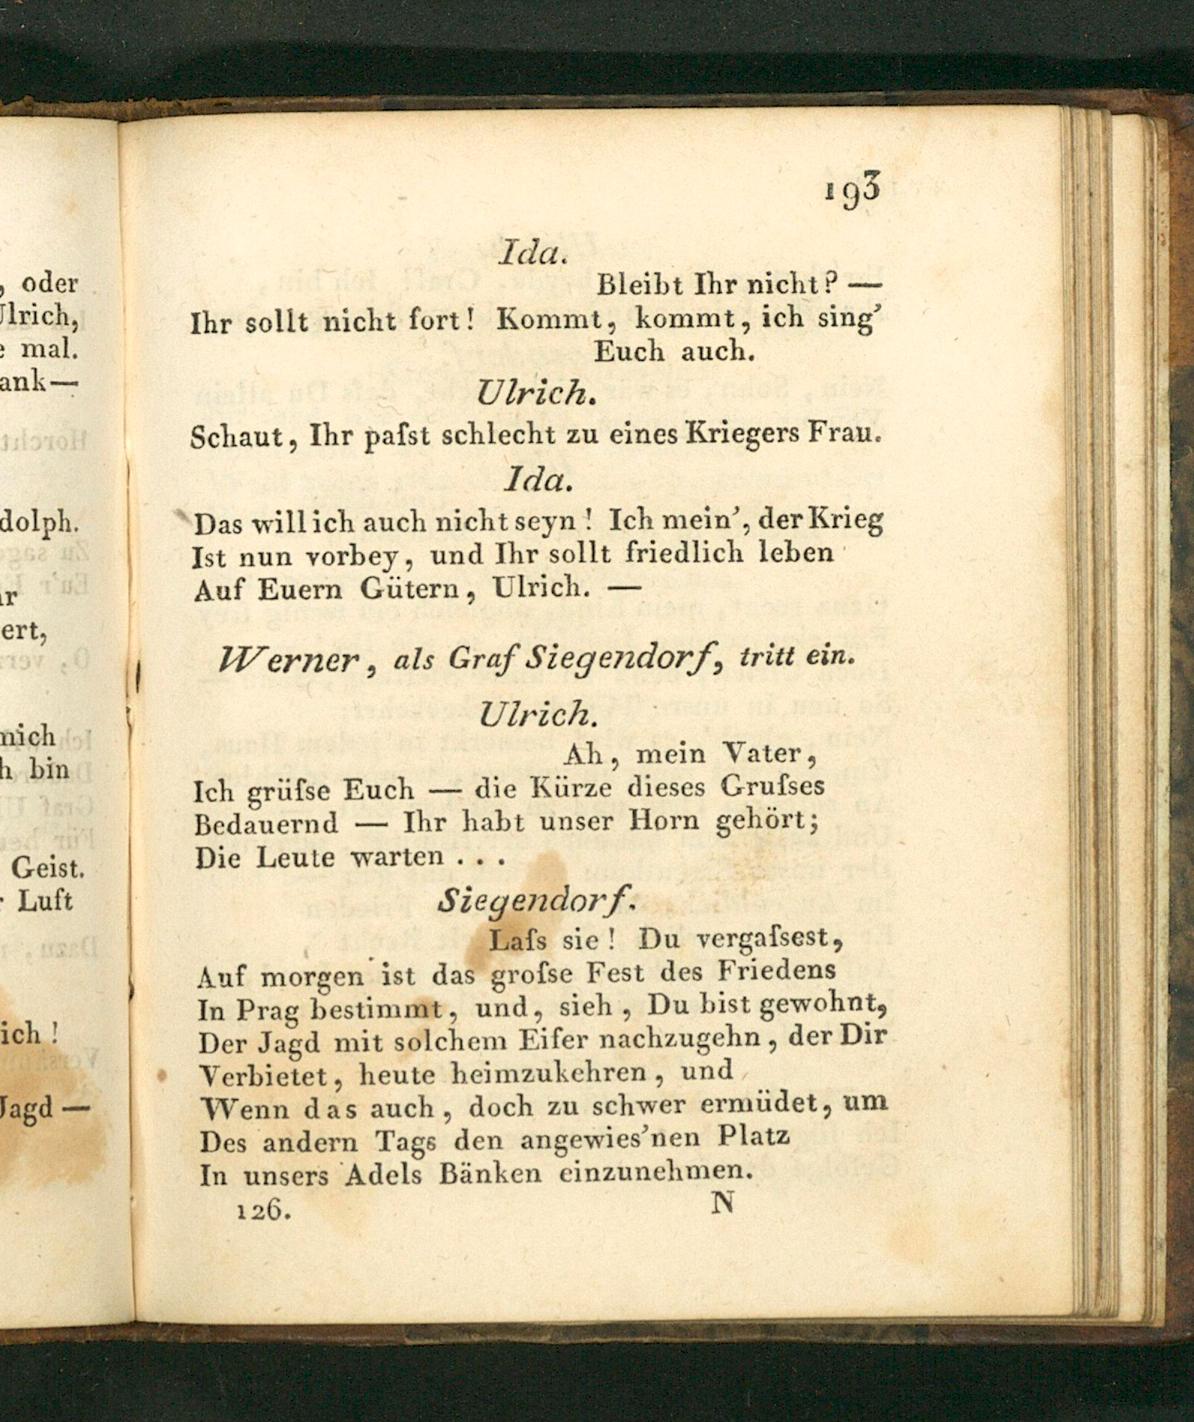 , oder
Ulrich,
mal.
ank—
dolph.
ert,
mich
bin
Geist.
Luft
ich!
Jagd —
193
Ida.
Bleibt Ihr nicht? —
Ihr sollt nicht fort! Kommt, kommt, ich sing'
Euch auch.
Ulrich.
Schaut, Ihr paſst schlecht zu eines Kriegers Frau.
Ida.
Das will ich auch nicht seyn! Ich mein', der Krieg
Ist nun vorbey, und Ihr sollt friedlich leben
Auf Euern Gütern, Ulrich. —
Werner, als Graf Siegendorf, tritt ein.
Ulrich.
Ah, mein Vater,
Ich grüſse Euch — die Kürze dieses Gruſses
Bedauernd — Ihr habt unser Horn gehört;
Die Leute warten . . .
Siegendorf.
Laſs sie! Du vergaſsest,
Auf morgen ist das groſse Fest des Friedens
In Prag bestimmt, und, sieh, Du bist gewohnt,
Der Jagd mit solchem Eifer nachzugehn, der Dir
Verbietet, heute heimzukehren, und
Wenn das auch, doch zu schwer ermüdet, um
Des andern Tags den angewies'nen Platz
In unsers Adels Bänken einzunehmen.
126. N